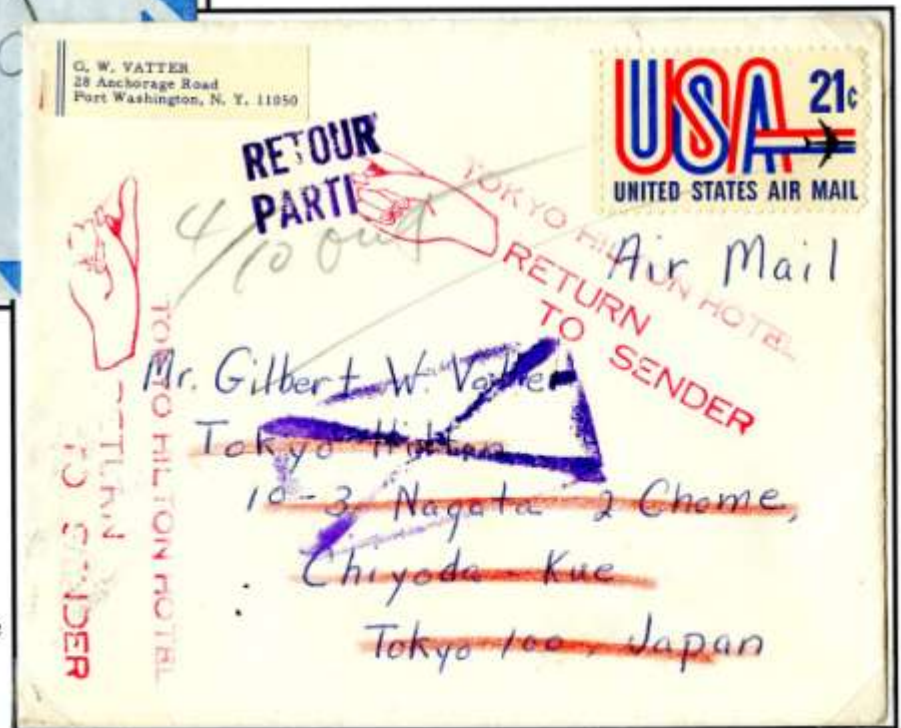 G. W. VATTER
28 Anchorage Road
Port Washington, N. Y. 11050
USA 21c
UNITED STATES AIR MAIL
RETOUR
PARTI
4/10 out
TOKYO HILTON HOTEL
RETURN
TO SENDER
Air Mail
Mr. Gilbert W. Vatter
Tokyo Hilton
10-3, Nagata 2 Chome,
Chiyoda-Kue
Tokyo 100, Japan
TOKYO HILTON HOTEL
RETURN
TO SENDER